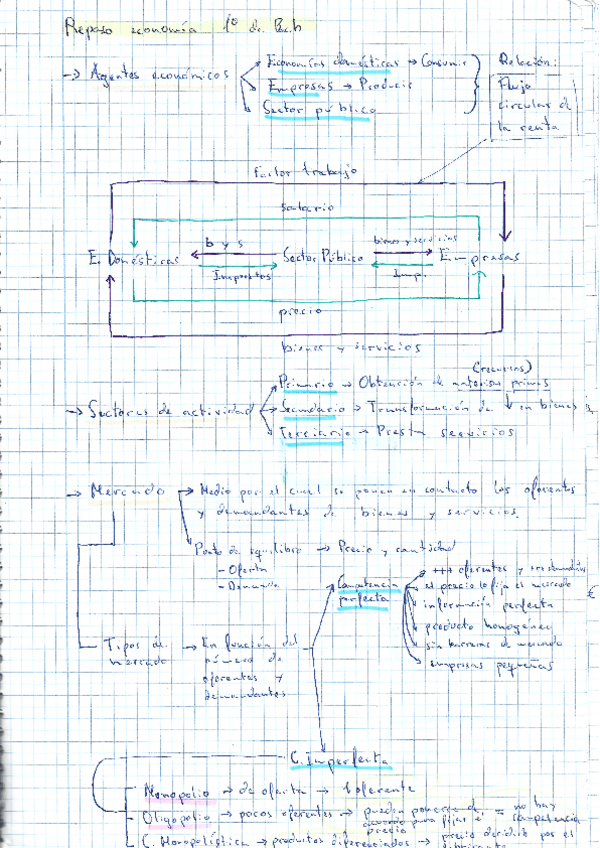 Repaso economía 1º de Bach
→ Agentes económicos
Economías domésticas → Consumir
Empresas → Producir
Sector público
Relación:
Flujo
circular de
la renta
Factor trabajo
Salario
b y s
bienes y servicios
E. Domésticas
Sector Público
Empresas
Impuestos
Imp.
precio
bienes y servicios
(recursos)
Primario → Obtención de materias primas
→ Sectores de actividad
Secundario → Transformación de ↓ en bienes
Terciario → Presta servicios
→ Mercado → Medio por el cual se ponen en contacto los oferentes
y demandantes de bienes y servicios.
Punto de equilibrio → Precio y cantidad
- Oferta
- Demanda
Competencia
perfecta
+++ oferentes y +++ demandan
el precio lo fija el mercado
información perfecta
producto homogéneo
sin barreras de mercado
empresas pequeñas
€
Tipos de
mercado
→ En función del
número de
oferentes y
demandantes
C. Imperfecta
Monopolio → de oferta → 1 oferente
Oligopolio → pocos oferentes → pueden ponerse de
acuerdo para fijar el
precio
= no hay
competencia
C. Monopolística → productos diferenciados → precio decidido por el